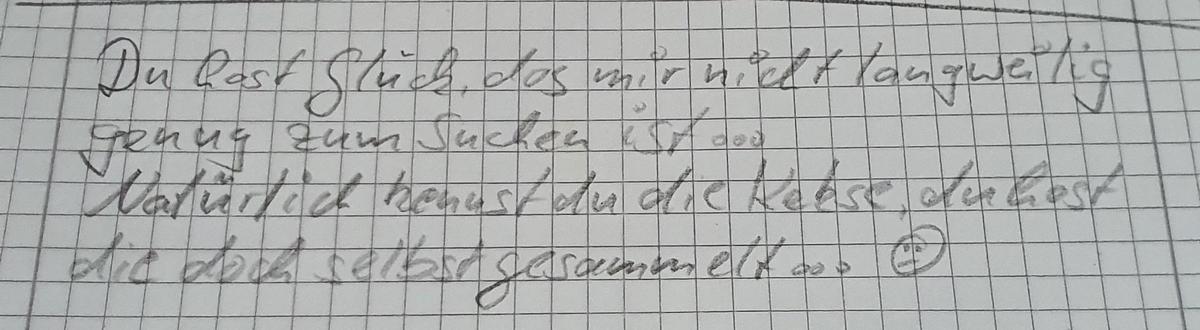 Du hast Glück, das mir nicht langweilig
genug zum Suchen ist...
Natürlich kenust du die Kekse, du hast
die doch selbst gesammelt...